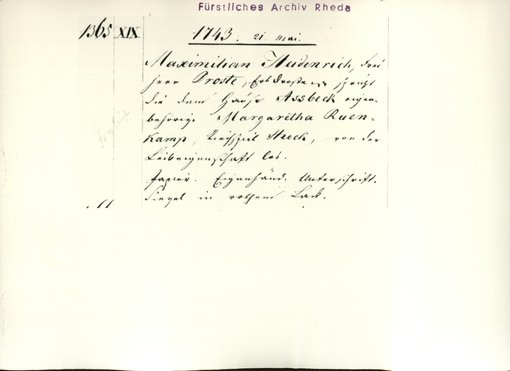 Fürstliches Archiv Rheda
1365 XIX 1743. 21 mai.
Maximilian Heidenrich, Frei
herr Droste, Erbdroste etc spricht
die dem Hause Assbeck eigen-
behörige Margaretha Ruen-
kamp, Kirchspiel Heeck, von der
Leibeigenschaft los.
Papier. Eigenhänd. Unterschrift.
Siegel in rothem Lack.